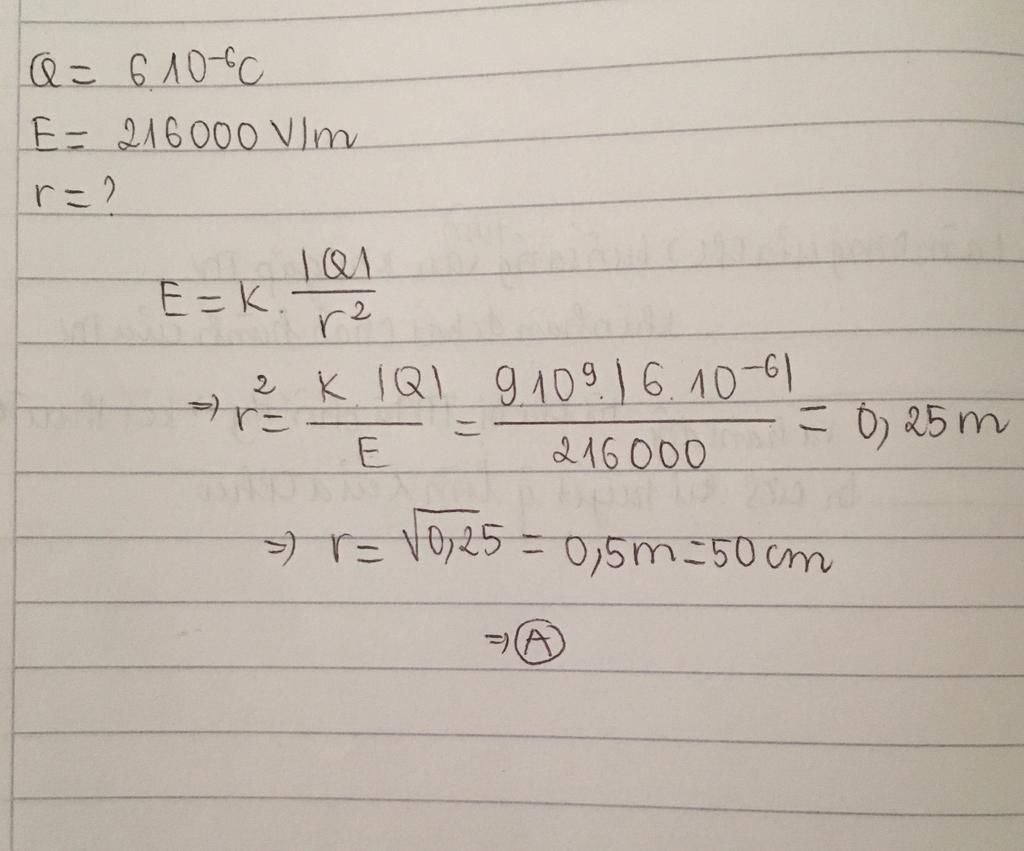 Q = 6.10⁻⁶C
E = 216000 V/m
r = ?
E = K. |Q| / r²
⇒ r² = K. |Q| / E = 9.10⁹.|6.10⁻⁶| / 216000 = 0,25m
⇒ r = √0,25 = 0,5m = 50cm
⇒ Ⓐ